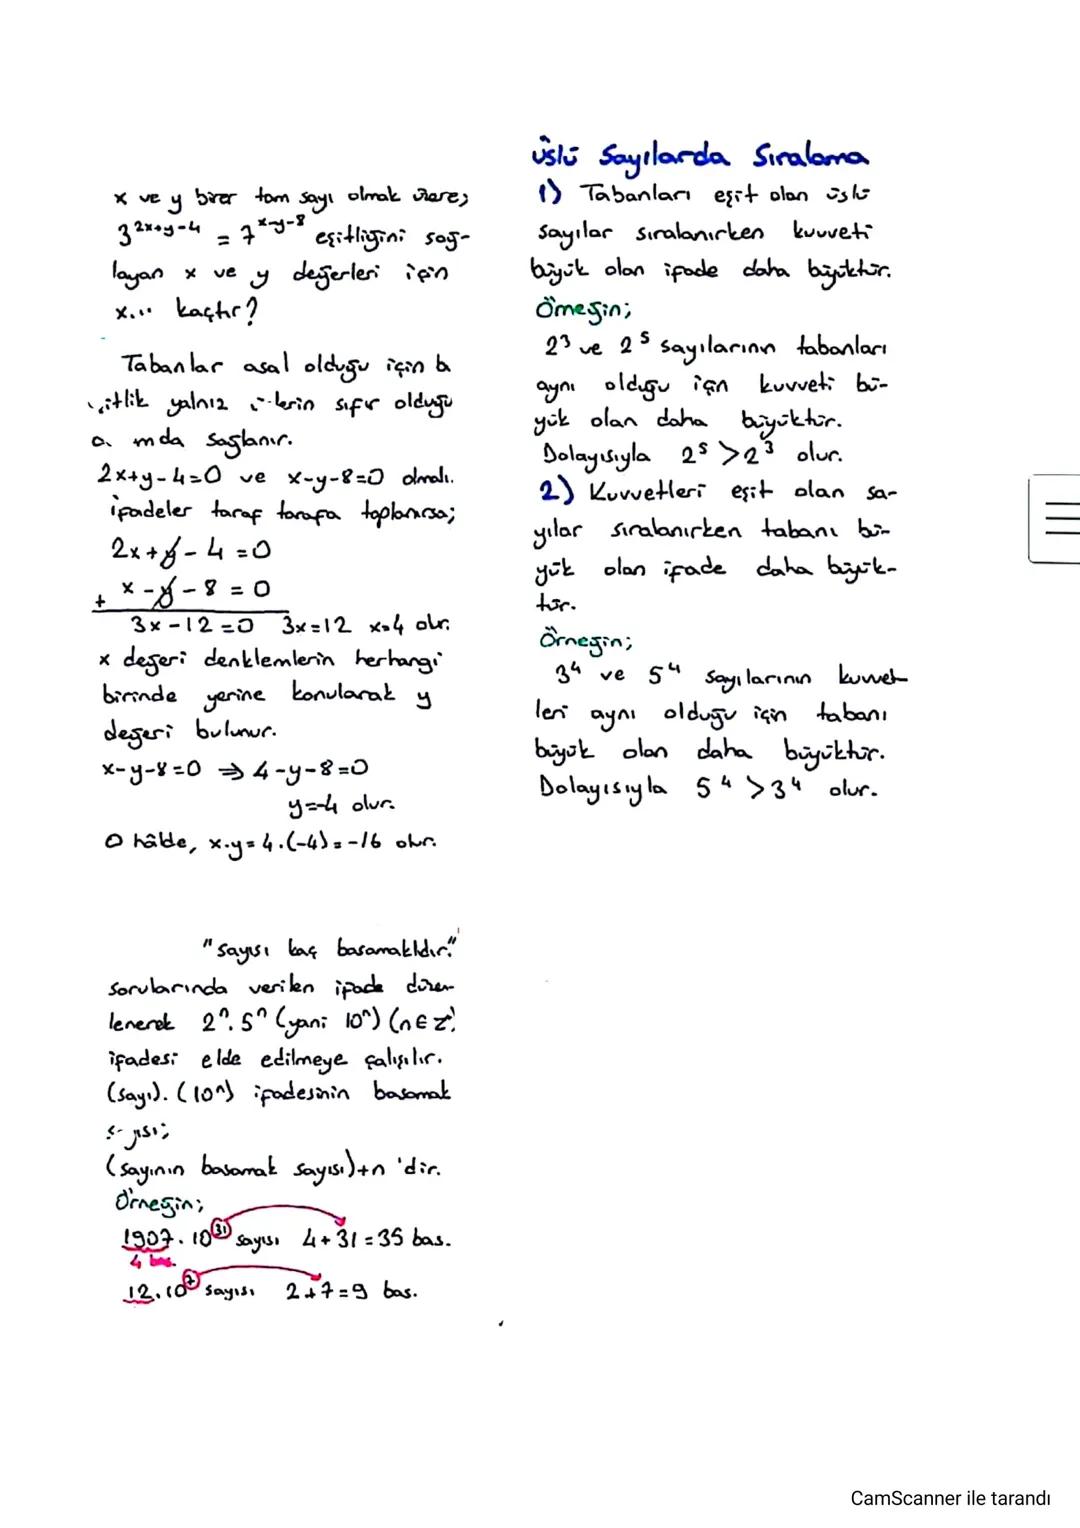 x ve y birer tam sayı olmak üzere;
3^(2x+y-4) = 7^(x-y-8) eşitliğini sağ-
layan x ve y değerleri için
x... kaçtır?
Tabanlar asal olduğu için b
eşitlik yalnız lerin sıfır olduğu
mda sağlanır.
2x+y-4=0 ve x-y-8=0 olmalı.
ifadeler taraf tarafa toplanırsa;
2x+y-4=0
+ x-y-8=0
3x-12=0 3x=12 x=4 olur.
x değeri denklemlerin herhangi
birinde yerine konularak y
değeri bulunur.
x-y-8=0 ⇒ 4-y-8=0
y=-4 olur.
O hâlde, x.y=4.(-4)=-16 olur.
"sayısı kaç basamaklıdır."
sorularında verilen ifade düzen-
lenerek 2ⁿ.5ⁿ (yani 10ⁿ) (n∈Z)
ifadesi elde edilmeye çalışılır.
(sayı).(10ⁿ) ifadesinin basamak
sayısı;
(sayının basamak sayısı)+n 'dir.
Örneğin;
1907.10³¹ sayısı 4+31=35 bas.
4 bas.
12.10⁷ sayısı 2+7=9 bas.
Üslü Sayılarda Sıralama
1) Tabanları eşit olan üslü
sayılar sıralanırken kuvveti
büyük olan ifade daha büyüktür.
Örneğin;
2³ ve 2⁵ sayılarının tabanları
aynı olduğu için kuvveti bü-
yük olan daha büyüktür.
Dolayısıyla 2⁵ > 2³ olur.
2) Kuvvetleri eşit olan sa-
yılar sıralanırken tabanı bü-
yük olan ifade daha büyük-
tür.
Örneğin;
3⁴ ve 5⁴ sayılarının kuvvet
leri aynı olduğu için tabanı
büyük olan daha büyüktür.
Dolayısıyla 5⁴ > 3⁴ olur.
CamScanner ile tarandı